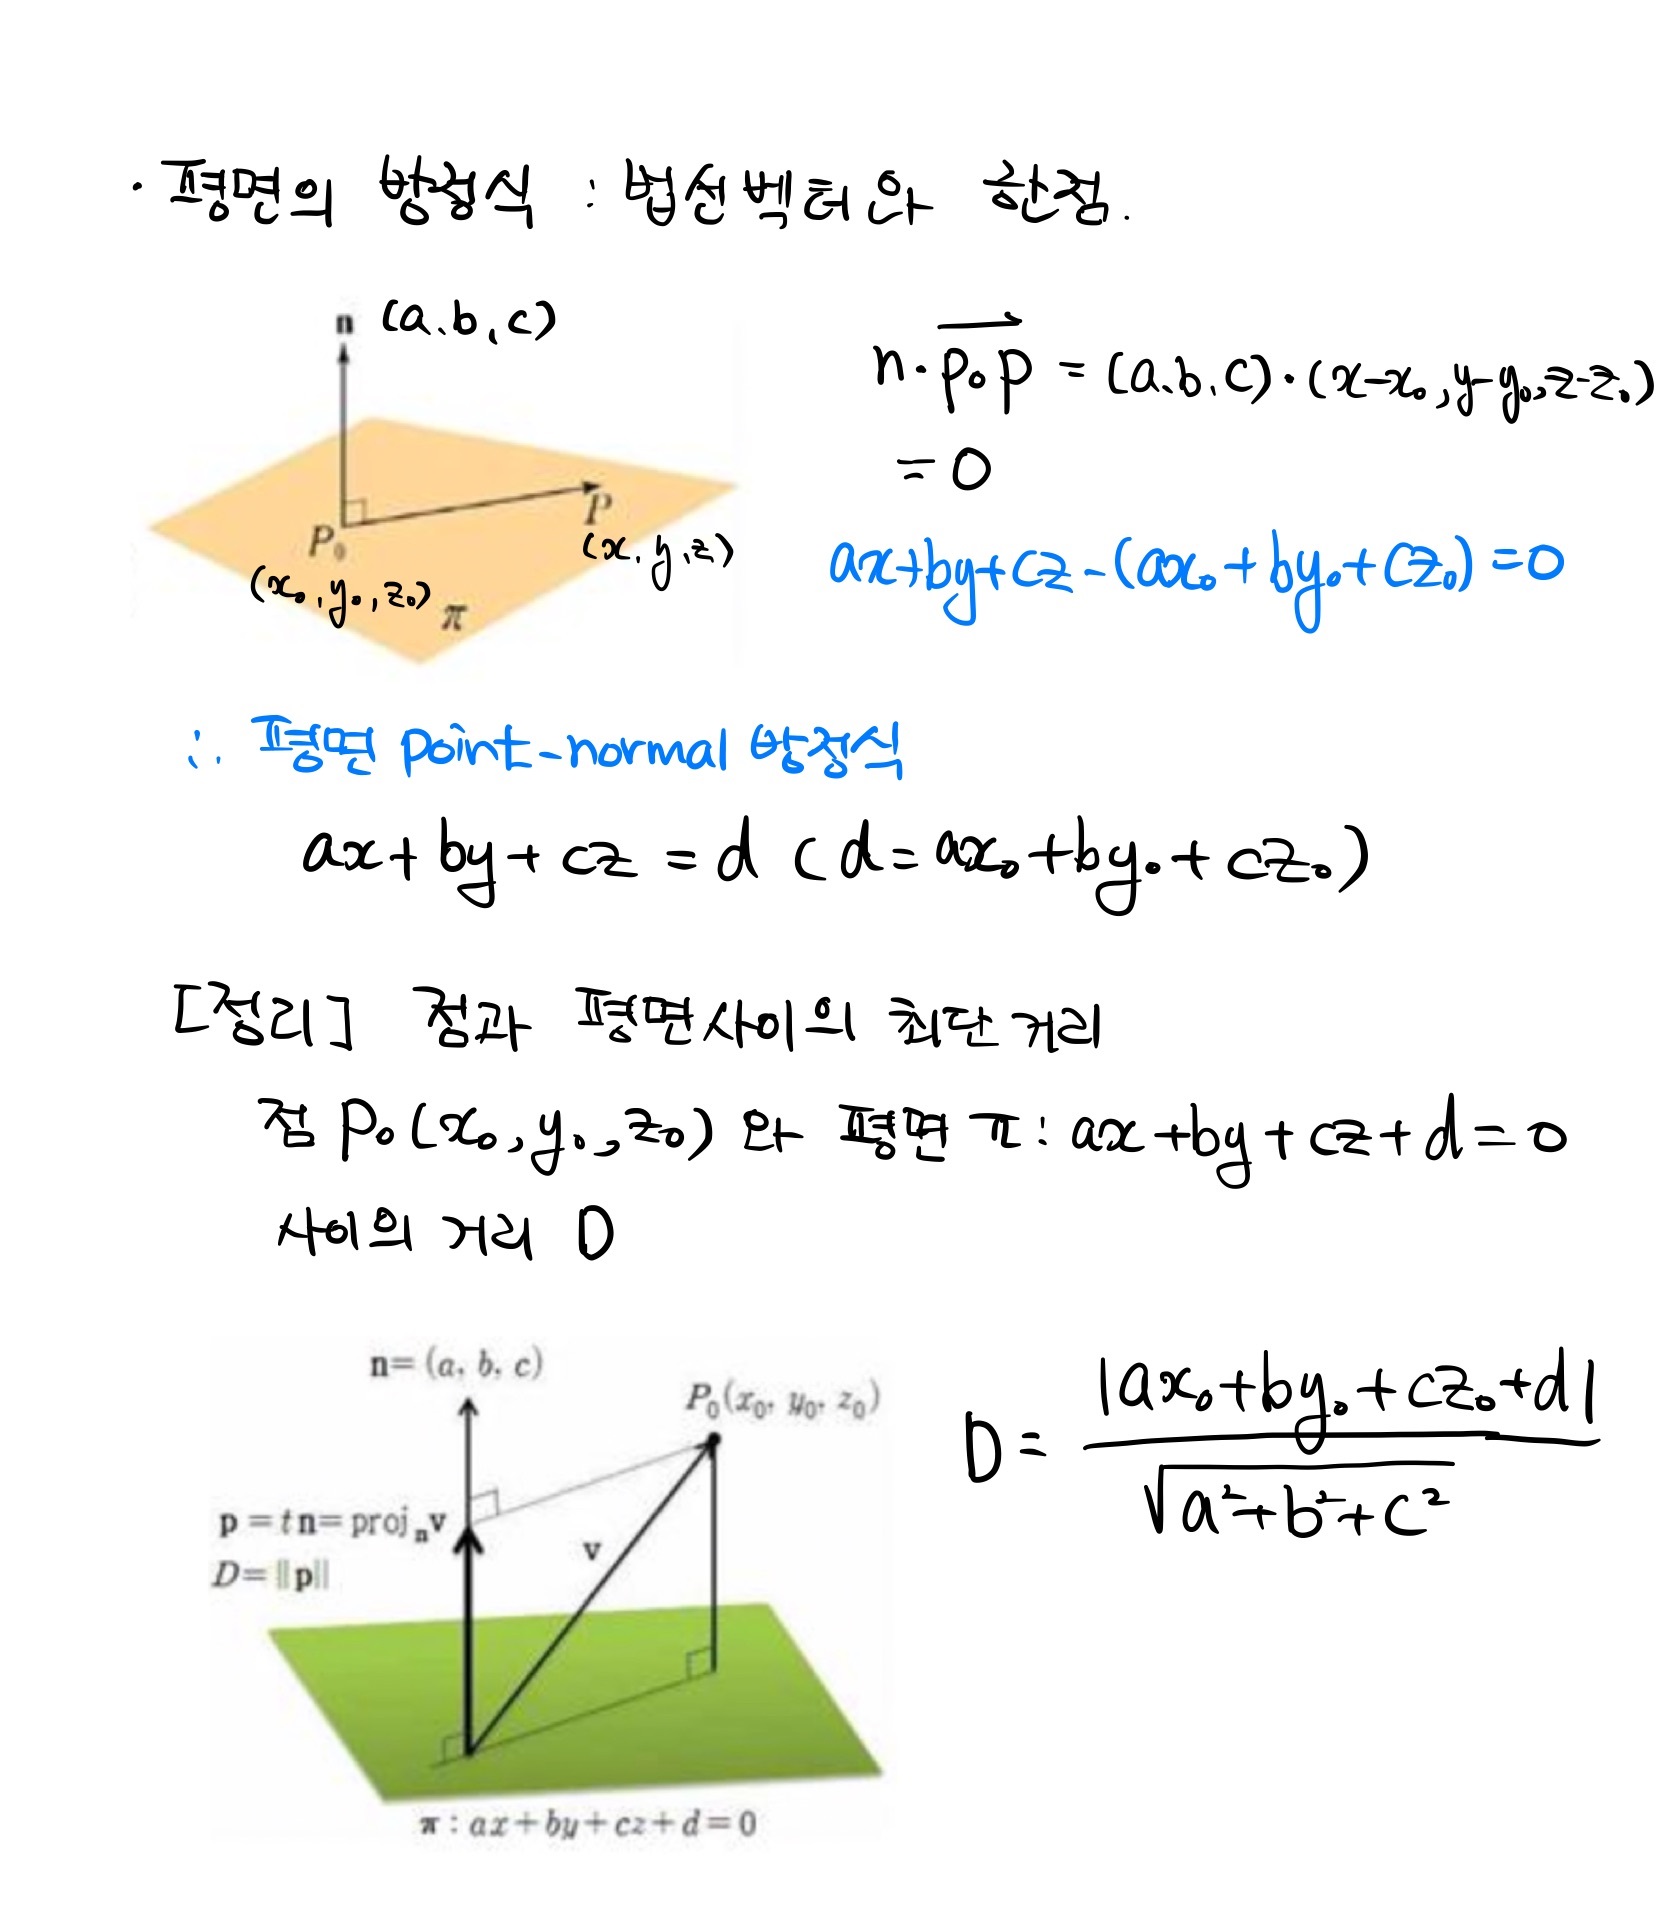 · 평면의 방정식 : 법선벡터와 한점.
n (a.b,c)
n·p₀p = (a.b.c)·(x-x₀,y-y₀,z-z₀)
= 0
P
P₀
(x.y.z)
(x₀,y₀,z₀)
π
ax+by+cz-(ax₀+by₀+cz₀)=0
∴ 평면 point-normal 방정식
ax+by+cz = d (d=ax₀+by₀+cz₀)
[정리] 점과 평면사이의 최단거리
점 P₀(x₀,y₀,z₀) 와 평면 π: ax+by+cz+d=0
사이의 거리 D
n=(a, b, c)
P₀(x₀, y₀, z₀)
p=tn=projₙv
D=||p||
v
π : ax+by+cz+d=0
D= |ax₀+by₀+cz₀+d|
√a²+b²+c²